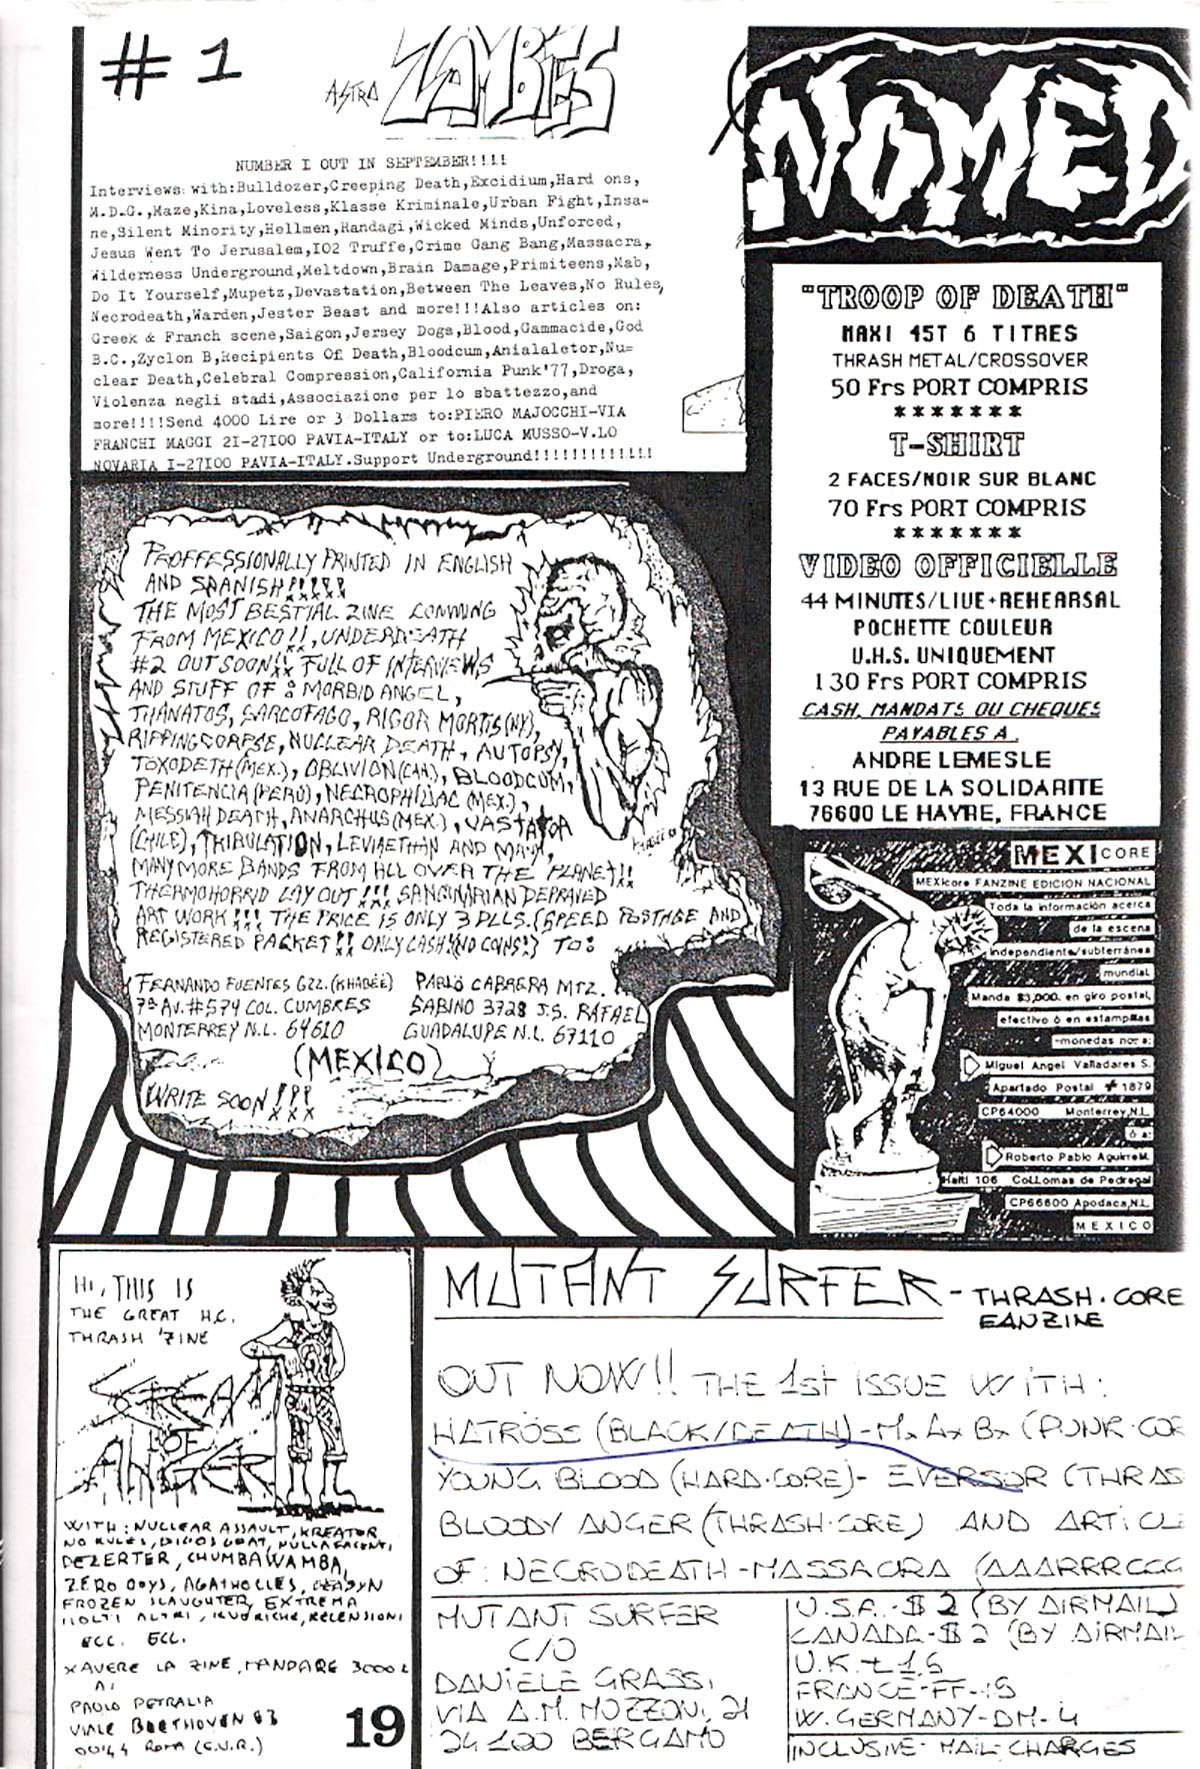 # 1
ASTRO ZOMBIES
NUMBER I OUT IN SEPTEMBER!!!!
Interviews with:Bulldozer,Creeping Death,Excidium,Hard ons,
M.D.G.,Maze,Kina,Loveless,Klasse Kriminale,Urban Fight,Insa-
ne,Silent Minority,Hellmen,Randagi,Wicked Minds,Unforced,
Jesus Went To Jerusalem,IO2 Truffe,Crime Gang Bang,Massacra,
Wilderness Underground,Meltdown,Brain Damage,Primiteens,Mab,
Do It Yourself,Mupetz,Devastation,Between The Leaves,No Rules,
Necrodeath,Warden,Jester Beast and more!!!Also articles on:
Greek & Franch scene,Saigon,Jersey Dogs,Blood,Gammacide,God
B.C.,Zyclon B,Recipients Of Death,Bloodcum,Anialaletor,Nu=
clear Death,Celebral Compression,California Punk'77,Droga,
Violenza negli stadi,Associazione per lo sbattezzo,and
more!!!!Send 4000 Lire or 3 Dollars to:PIERO MAJOCCHI-VIA
FRANCHI MAGGI 2I-27I00 PAVIA-ITALY or to:LUCA MUSSO-V.LO
NOVARIA I-27I00 PAVIA-ITALY.Support Underground!!!!!!!!!!!!!
NOMED
"TROOP OF DEATH"
MAXI 45T 6 TITRES
THRASH METAL/CROSSOVER
50 Frs PORT COMPRIS
*******
T-SHIRT
2 FACES/NOIR SUR BLANC
70 Frs PORT COMPRIS
*******
VIDEO OFFICIELLE
44 MINUTES/LIVE+REHEARSAL
POCHETTE COULEUR
U.H.S. UNIQUEMENT
130 Frs PORT COMPRIS
CASH, MANDATS OU CHEQUES
PAYABLES A
ANDRE LEMESLE
13 RUE DE LA SOLIDARITE
76600 LE HAVRE, FRANCE
PROFFESSIONALLY PRINTED IN ENGLISH
AND SPANISH!!!!!
THE MOST BESTIAL ZINE COMMING
FROM MEXICO!!, UNDERDEATH
#2 OUT SOON!! FULL OF INTERVIEWS
AND STUFF OF: MORBID ANGEL,
THANATOS, SARCOFAGO, RIGOR MORTIS(NY),
RIPPING CORPSE, NUCLEAR DEATH, AUTOPSY,
TOXODETH (MEX.), OBLIVION(CAN.), BLOODCUM,
PENITENCIA (PERU), NECROPHILIAC (MEX.),
MESSIAH DEATH, ANARCHUS (MEX.), VASTATOR
(CHILE), TRIBULATION, LEVIAETHAN AND MANY,
MANY MORE BANDS FROM ALL OVER THE PLANET!!
THERMOHORRID LAY OUT!!! SANGUINARIAN DEPRAVED
ART WORK!!! THE PRICE IS ONLY 3 DLLS. (SPEED POSTAGE AND
REGISTERED PACKET!! ONLY CASH!(NO COINS!) TO:
FERNANDO FUENTES GZZ. (KHABEE)
7ª AV. #574 COL. CUMBRES
MONTERREY N.L. 64610
PABLO CABRERA MTZ.
SABINO 3728 J.S. RAFAEL
GUADALUPE N.L. 67110
(MEXICO)
WRITE SOON!!!
MEXICORE
MEXIcore FANZINE EDICION NACIONAL
Toda la información acerca
de la escena
independiente/subterránea
mundial.
Manda $3,000. en giro postal,
efectivo ó en estampillas
-monedas no: a:
Miguel Angel Valladares S.
Apartado Postal # 1879
CP64000 Monterrey,N.L.
ó a:
Roberto Pablo Aguirre M.
Haití 106 Col.Lomas de Pedregal
CP66600 Apodaca,N.L.
MEXICO
HI, THIS IS
THE GREAT H.C.
THRASH 'ZINE
SCREAM OF ANGER
WITH: NUCLEAR ASSAULT, KREATOR
NO RULES, DIGOS GOAT, NULLAFACENTI,
DEZERTER, CHUMBAWAMBA,
ZERO BOYS, AGATHOCLES,
FROZEN SLAUGHTER, EXTREMA
MOLTI ALTRI, RUBRICHE, RECENSIONI
ECC. ECC.
X AVERE LA ZINE, MANDARE 3000 L
A:
PAOLO PETRALIA
VIALE BEETHOVEN 63
00144 ROMA (E.U.R.)
19
MUTANT SURFER - THRASH·CORE
FANZINE
OUT NOW!! THE 1st ISSUE WITH:
HATRÖSS (BLACK/DEATH)-M.A.B. (PUNK·COR
YOUNG BLOOD (HARD·CORE)- EVERSOR (THRAS
BLOODY ANGER (THRASH·CORE) AND ARTICLE
OF: NECRODEATH-MASSACRA (AAARRRGGG
MUTANT SURFER
C/O
DANIELE GRASSI
VIA A.M. MOZZONI, 21
24100 BERGAMO
U.S.A.-$ 2 (BY AIRMAIL)
CANADA-$ 2 (BY AIRMAIL
U.K.-£ 1,5
FRANCE-FF-15
W.GERMANY-DM-4
INCLUSIVE MAIL CHARGES